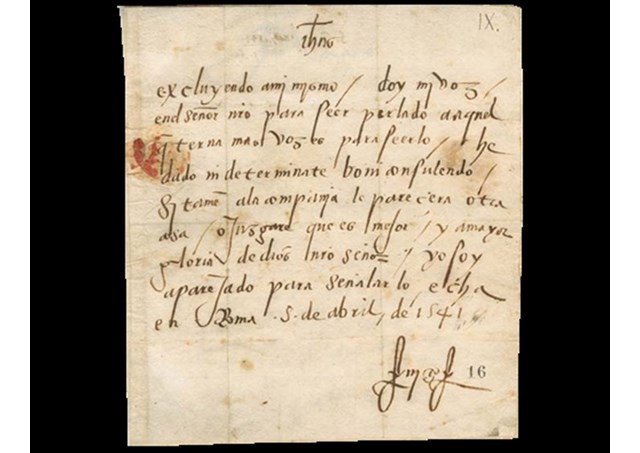 IX.
ihus
excluyendo a mi mismo / doy mi voz /
en el señor nro para seer perlado a aquel
q terna mas vozes para seerlo / he
dado indeterminate boni consulendo /
Si tamē a la compania le parecera otra
cosa / o juzgare que es mejor / y a mayor
gloria de dios nro señor / yo soy
aparejado para señalarlo / echa
en Roma .5. de abril, de 1541
16